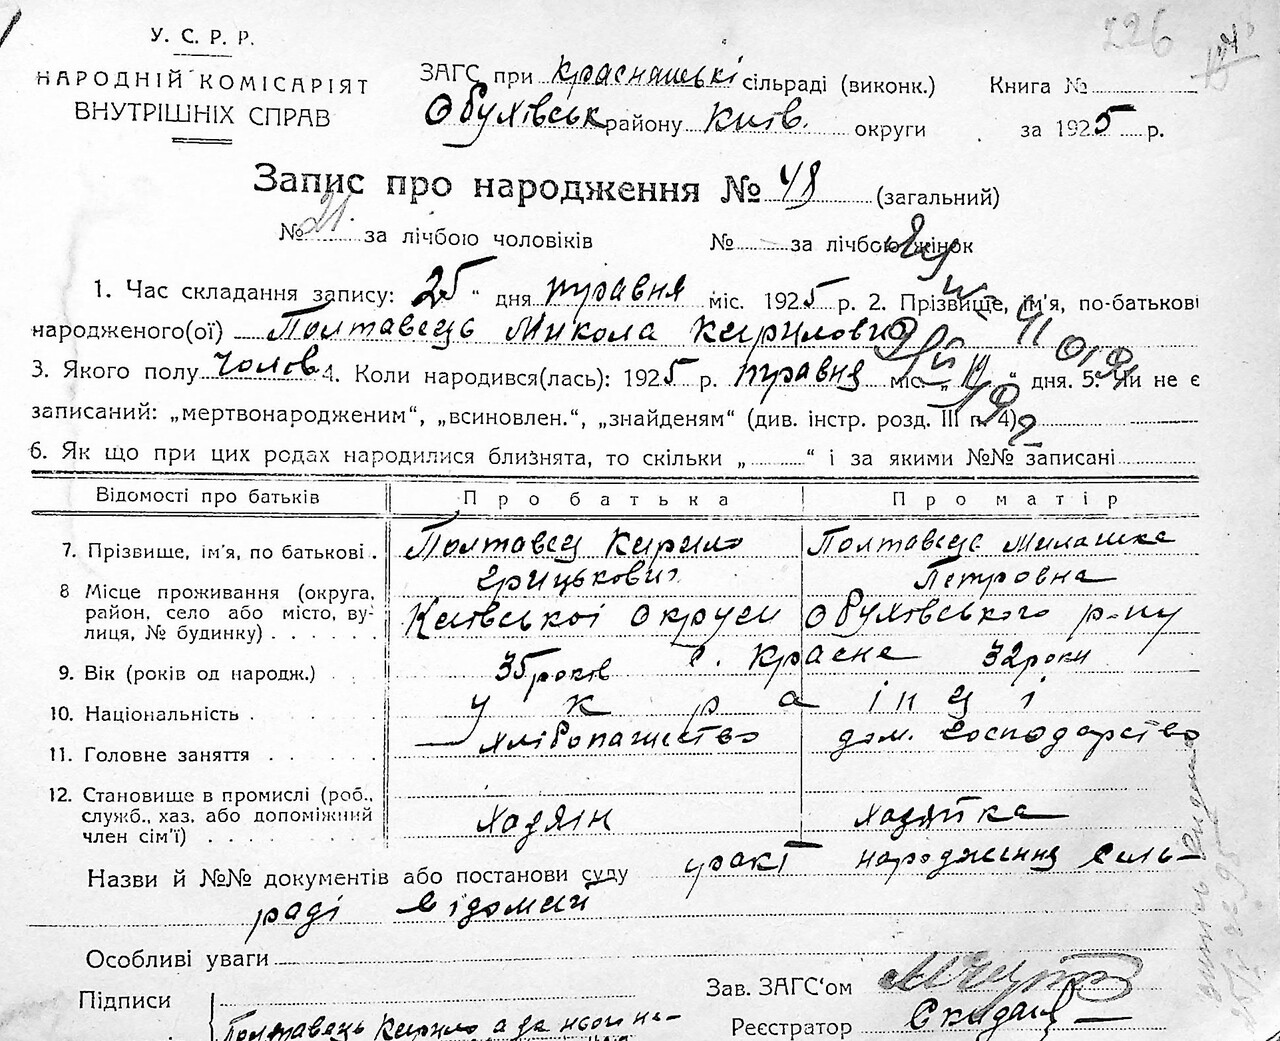 У. С. Р. Р.
НАРОДНІЙ КОМІСАРІЯТ
ВНУТРІШНІХ СПРАВ
226
ЗАГС при Краснянські сільраді (виконк.) Книга №
Обухівськ району Київ. округи за 1925 р.
Запис про народження № 48 (загальний)
№ 21. за лічбою чоловіків № за лічбою жінок
1. Час складання запису: 25 " дня травня міс. 1925 р. 2. Прізвище, ім'я, по-батькові
народженого(ої) Полтавець Микола Кирилович
3. Якого полу чолов 4. Коли народився(лась): 1925 р. травня міс. „ " дня. 5. Чи не є
записаний: „мертвонародженим", „всиновлен.", „знайденям" (див. інстр. розд. III п. 4)
6. Як що при цих родах народилися близнята, то скільки „ " і за якими №№ записані
Відомості про батьків Про батька Про матір
7. Прізвище, ім'я, по батькові . Полтавец Кирило Полтавець Милашка
Грицькович Петровна
8 Місце проживання (округа,
район, село або місто, ву-
лиця, № будинку) . . . . . . Київської округи Обухівського р-ну
с. Красне
9. Вік (років од народж.) . . . 35 років 32 роки
10. Національність . . . . . . українці
11. Головне заняття . . . . . . хлібопашество дом. господарство
12. Становище в промислі (роб.,
служб., хаз. або допоміжний
член сім'ї) . . . . . . . . Хазяїн Хазяйка
Назви й №№ документів або постанови суду факт народження сель-
раді відомий
Особливі уваги
Зав. ЗАГС'ом
Підписи Полтавець Кирило а за його не-
Реєстратор